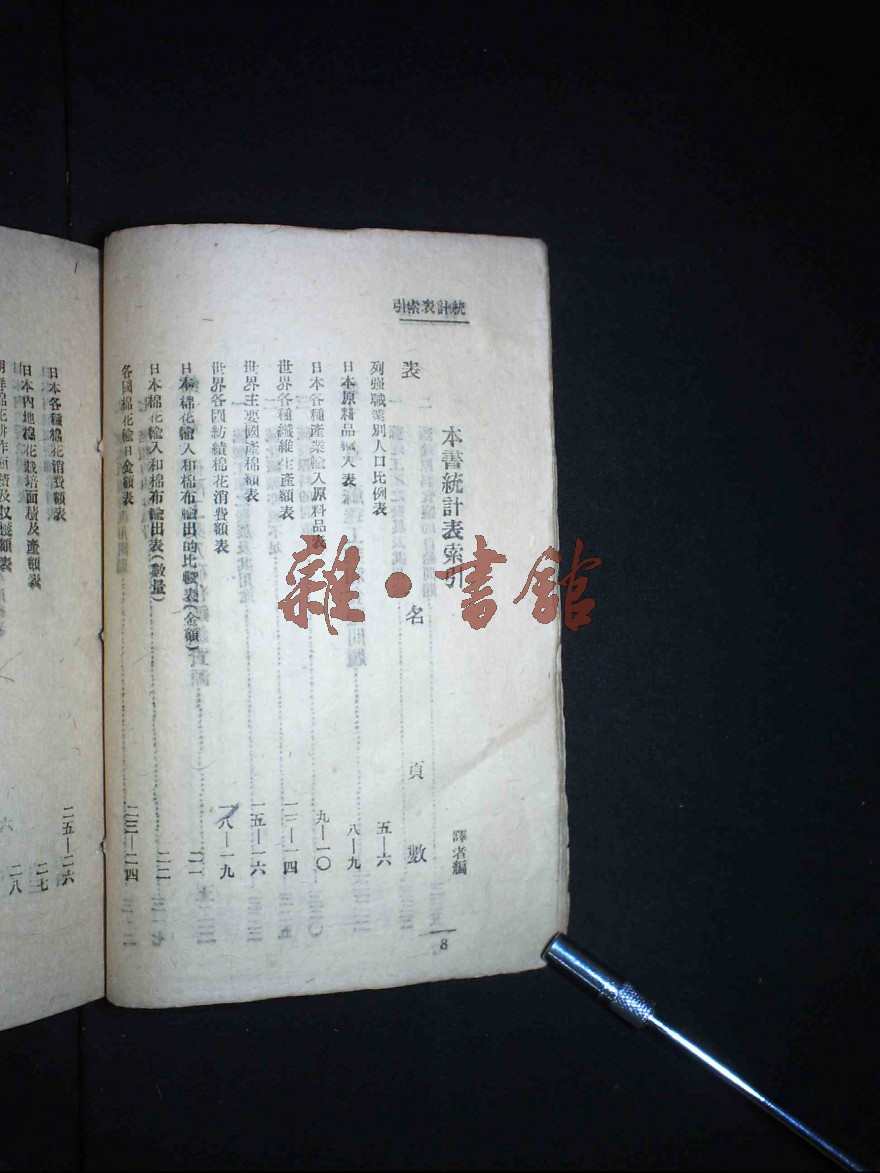 統計表索引
本書統計表索引
譯者編
表名 頁數
列強職業別人口比例表 五—六
日本原料品輸入表 八—九
日本各種產業輸入原料品表 九—一〇
世界各種纖維生產額表 一三—一四
世界主要國產棉額表 一五—一六
世界各國紡績棉花消費額表 一八—一九
日本棉花輸入和棉布輸出的比較表(金額) 二一
日本棉花輸入和棉布輸出表(數量) 二二
各國棉花輸出金額表 二三—二四
8
日本各種棉花消費額表 二五—二六
日本內地棉花栽培面積及產額表 二七
棉花耕作面積及收穫額表 二八
雜·書館